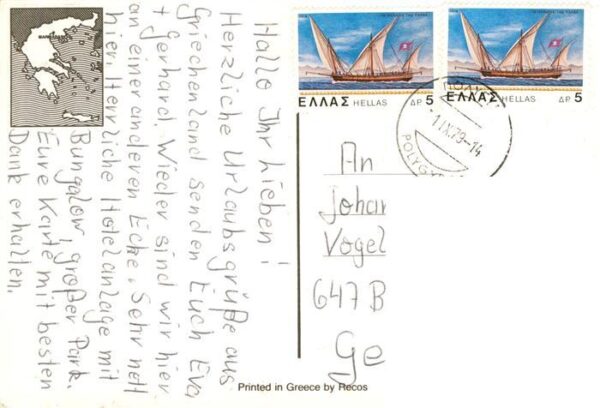 Hallo Ihr Lieben!
Herzliche Urlaubsgrüße aus
Griechenland senden Euch Eva
+ Gerhard. Wieder sind wir hier
an einer anderen Ecke. Sehr nett
hier. Herrliche Hotelanlage mit
Bungalow, großer Park.
Eure Karte mit besten
Dank erhalten.
ΕΛΛΑΣ HELLAS ΔΡ 5
ΕΛΛΑΣ HELLAS ΔΡ 5
1.IX.79-14
POLYG
An
Johan
Vogel
647 B
Ge
Printed in Greece by Recos